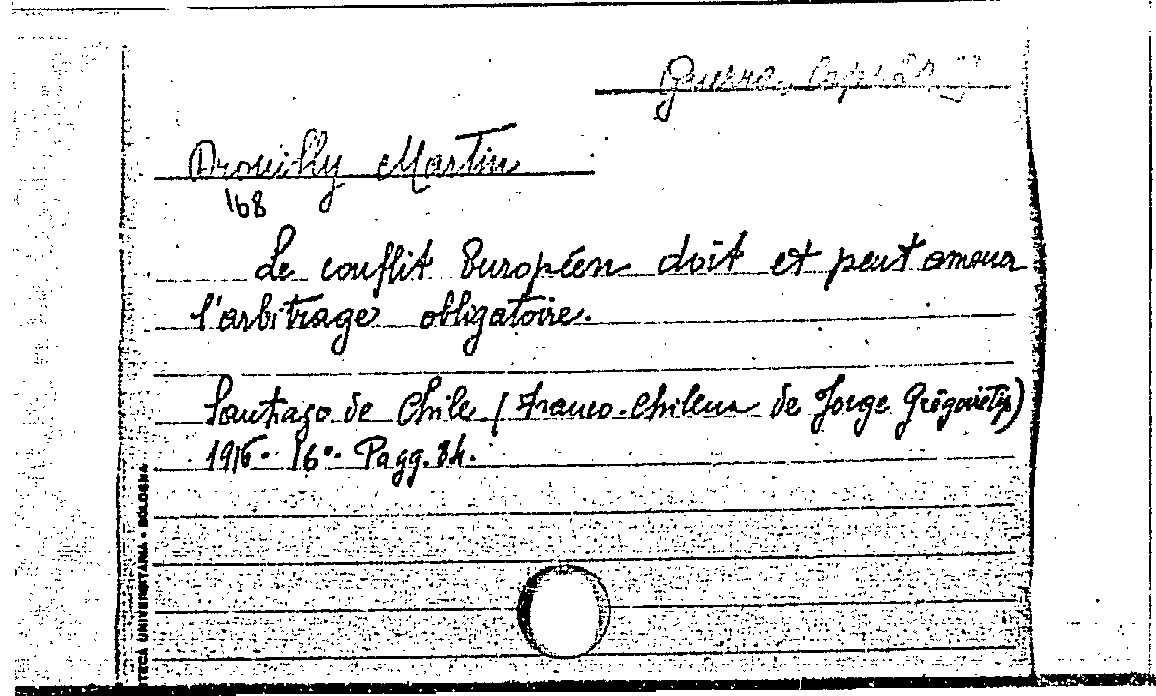 Guerra
Drouilly Martin
168
Le conflit Européen doit et peut amener
l'arbitrage obligatoire.
Santiago de Chile (Franco-Chilena de Jorge
1916. 16°. Pagg. 34.
TECA UNIVERSITARIA • BOLOGNA